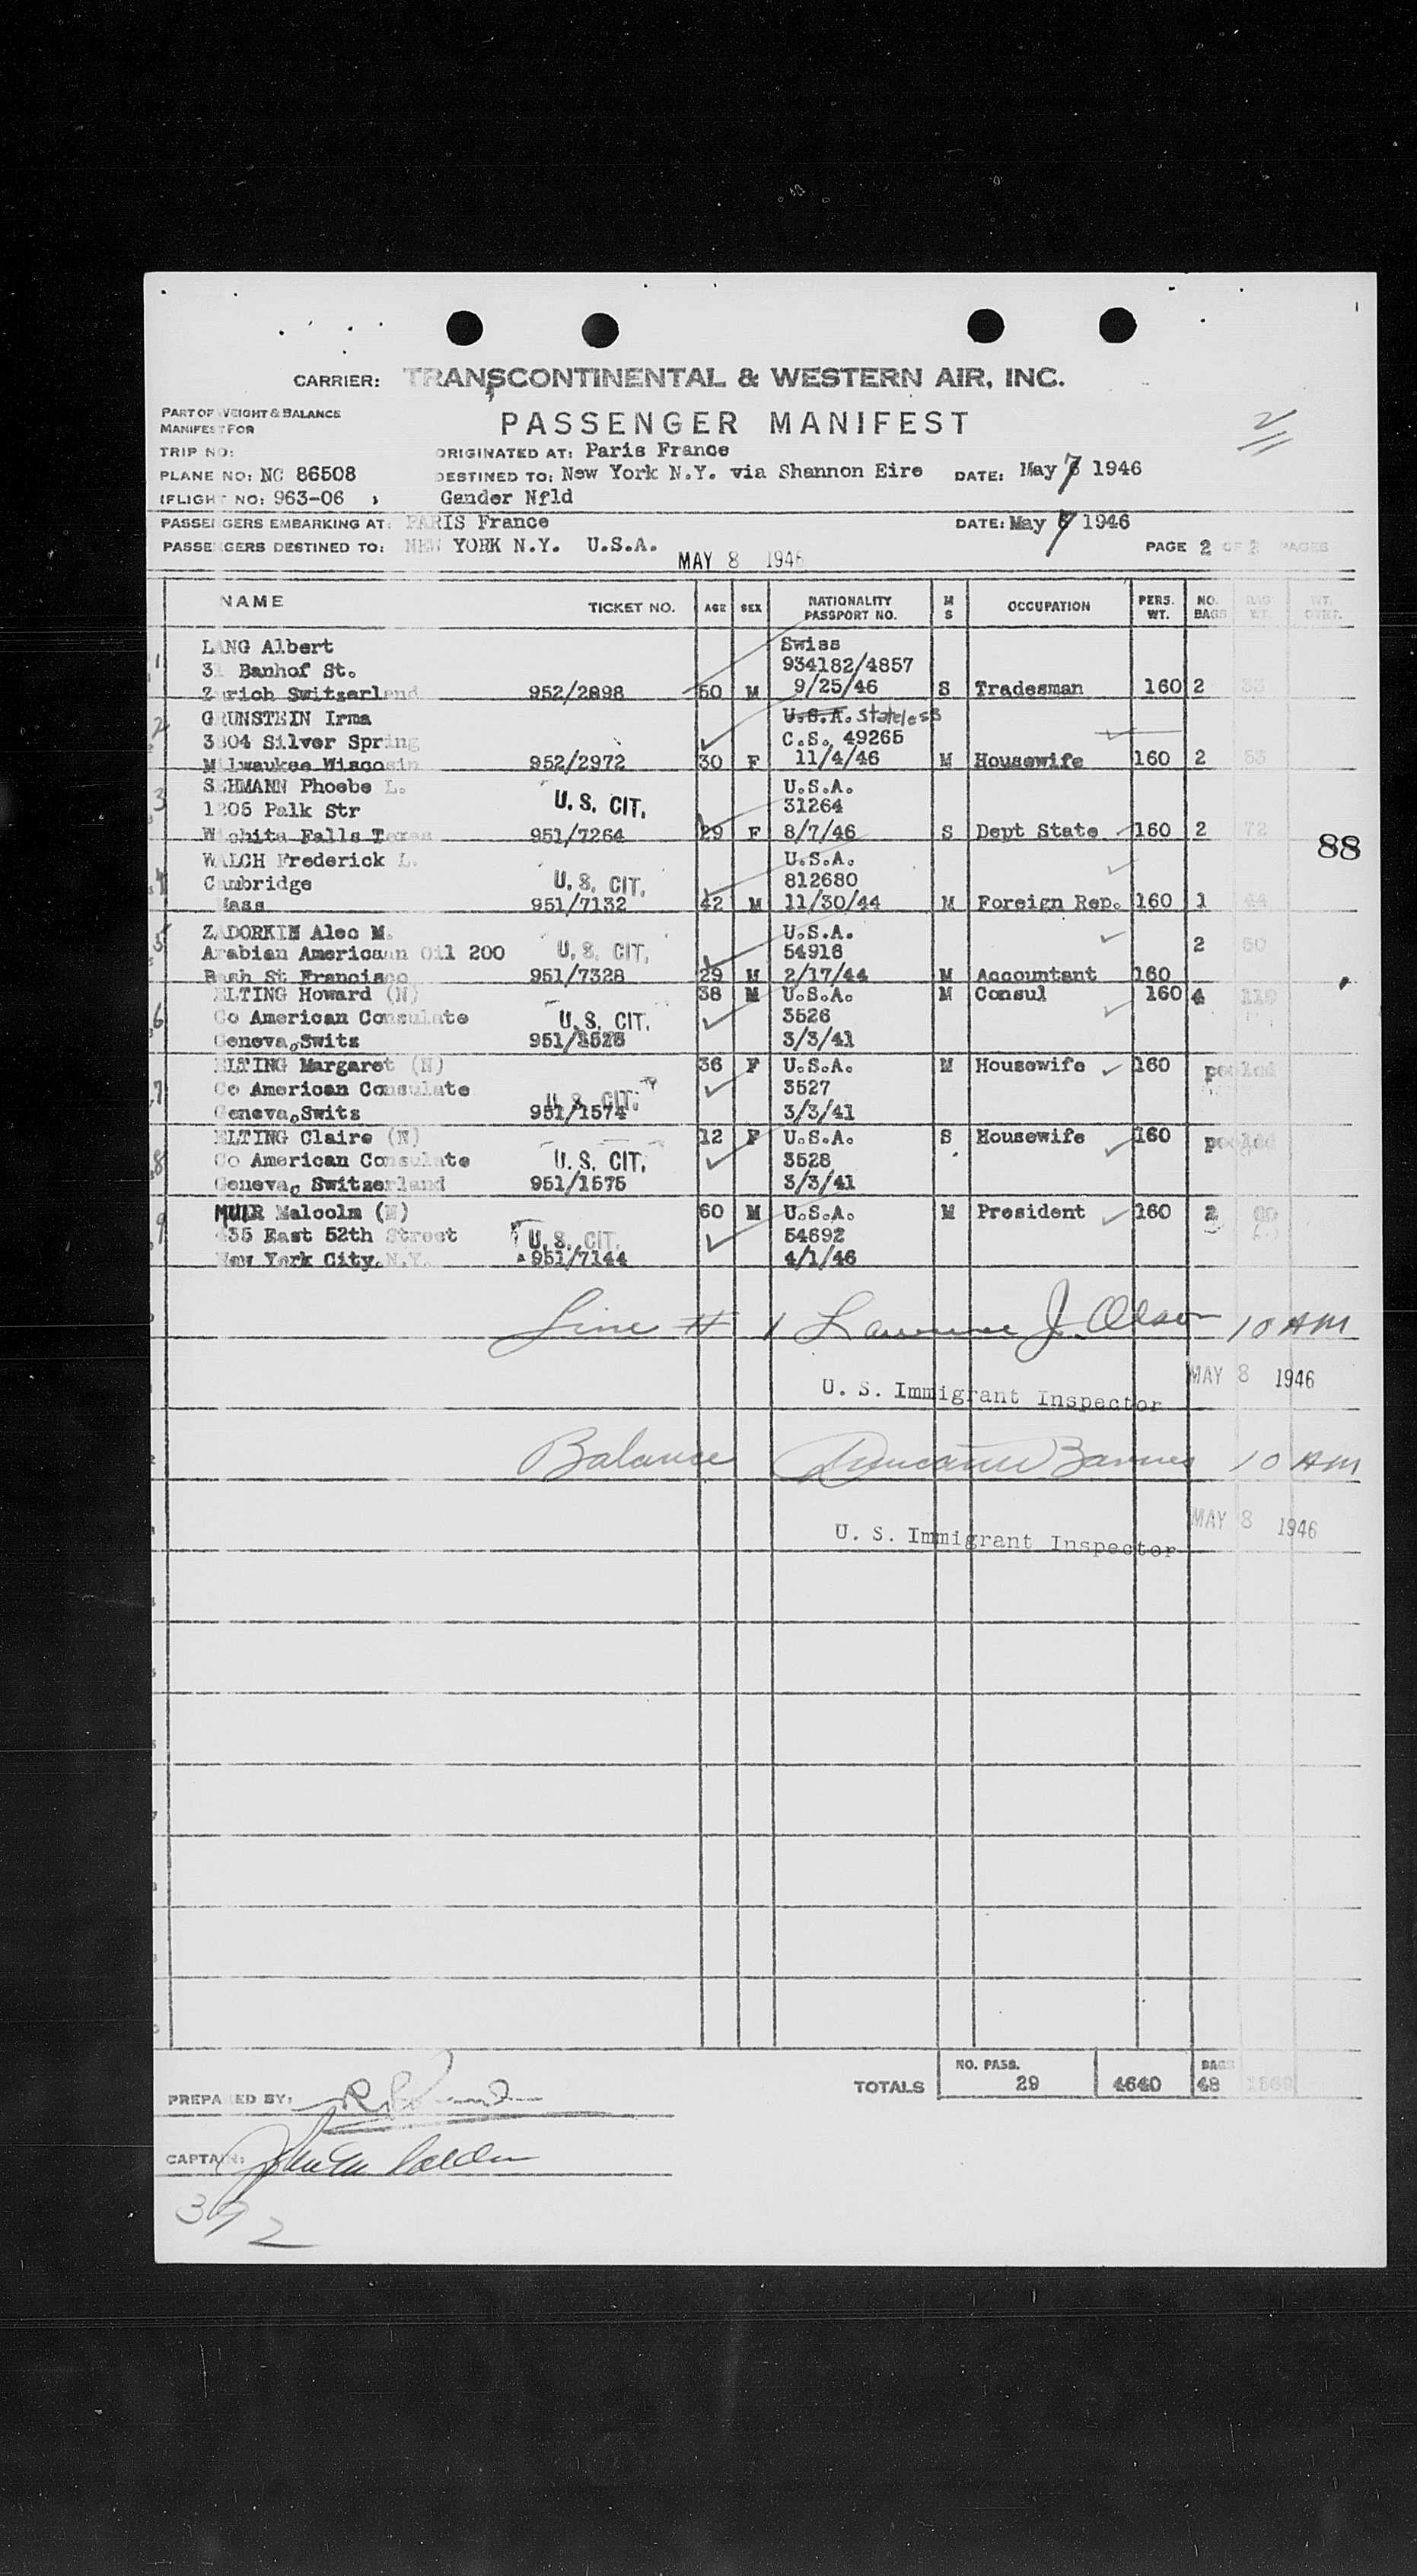 CARRIER: TRANSCONTINENTAL & WESTERN AIR, INC.
PART OF WEIGHT & BALANCE
MANIFEST FOR
PASSENGER MANIFEST
2
TRIP NO: ORIGINATED AT: Paris France
PLANE NO: NC 86508 DESTINED TO: New York N.Y. via Shannon Eire DATE: May 7 1946
(FLIGHT NO: 963-06 ) Gander Nfld
PASSENGERS EMBARKING AT: PARIS France DATE: May 7 1946
PASSENGERS DESTINED TO: NEW YORK N.Y. U.S.A. PAGE 2 OF 2 PAGES
MAY 8 1946
NAME TICKET NO. AGE SEX NATIONALITY PASSPORT NO. M S OCCUPATION PERS. WT. NO. BAGS BAG WT. WT. OVER.
1 LANG Albert Swiss
31 Banhof St. 934182/4857
Zurich Switzerland 952/2898 50 M 9/25/46 S Tradesman 160 2 35
2 GRUNSTEIN Irma U.S.A. Stateless
3804 Silver Spring C.S. 49265
Milwaukee Wiscosin 952/2972 30 F 11/4/46 M Housewife 160 2 53
3 SEHMANN Phoebe L. U.S.A.
1205 Palk Str U. S. CIT. 31264
Wichita Falls Texas 951/7264 29 F 8/7/46 S Dept State 160 2 72
88
4 WALCH Frederick L. U.S.A.
Cambridge U. S. CIT. 812680
Mass 951/7132 42 M 11/30/44 M Foreign Rep. 160 1 44
5 ZADORKIN Alec M. U.S.A.
Arabian Americaan Oil 200 U. S. CIT. 54916 2 50
Bash St Francisco 951/7328 29 M 2/17/44 M Accountant 160
6 ELTING Howard (N) 38 M U.S.A. M Consul 160 4 110
Co American Consulate U. S. CIT. 3526
Geneva,Switz 951/1528 3/3/41
7 ELTING Margaret (N) 36 F U.S.A. M Housewife 160 pooled
Co American Consulate U. S. CIT. 3527
Geneva,Switz 951/1574 3/3/41
8 ELTING Claire (N) 12 F U.S.A. S Housewife 160 pooled
Co American Consulate U. S. CIT. 3528
Geneva, Switzerland 951/1575 3/3/41
9 MUIR Malcolm (N) 60 M U.S.A. M President 160 2
435 East 52th Street U. S. CIT. 54692
New York City, N.Y. 951/7144 4/1/46
Line # 1 Lawrence J. Olson 10 AM
U. S. Immigrant Inspector MAY 8 1946
Balance Barnes 10 AM
U. S. Immigrant Inspector MAY 8 1946
TOTALS NO. PASS. 29 4640 BAGS 48
PREPARED BY:
CAPTAIN:
392